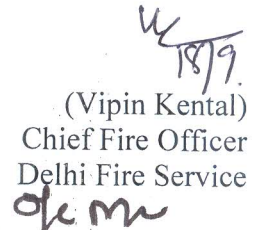 18/9
(Vipin Kental)
Chief Fire Officer
Delhi Fire Service